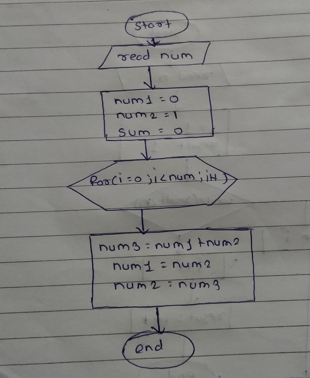 start
read num
num1 = 0
num2 = 1
sum = 0
for(i=0;i<num;i++)
num3 = num1 + num2
num1 = num2
num2 = num3
end